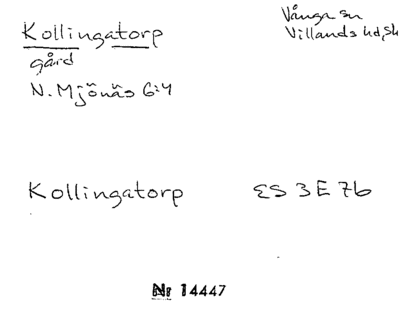 Kollingatorp
gård
N. Mjönäs 6:4
Vånga sn
Villands hd, Sk
Kollingatorp ES 3 E 7b
Nr 14447